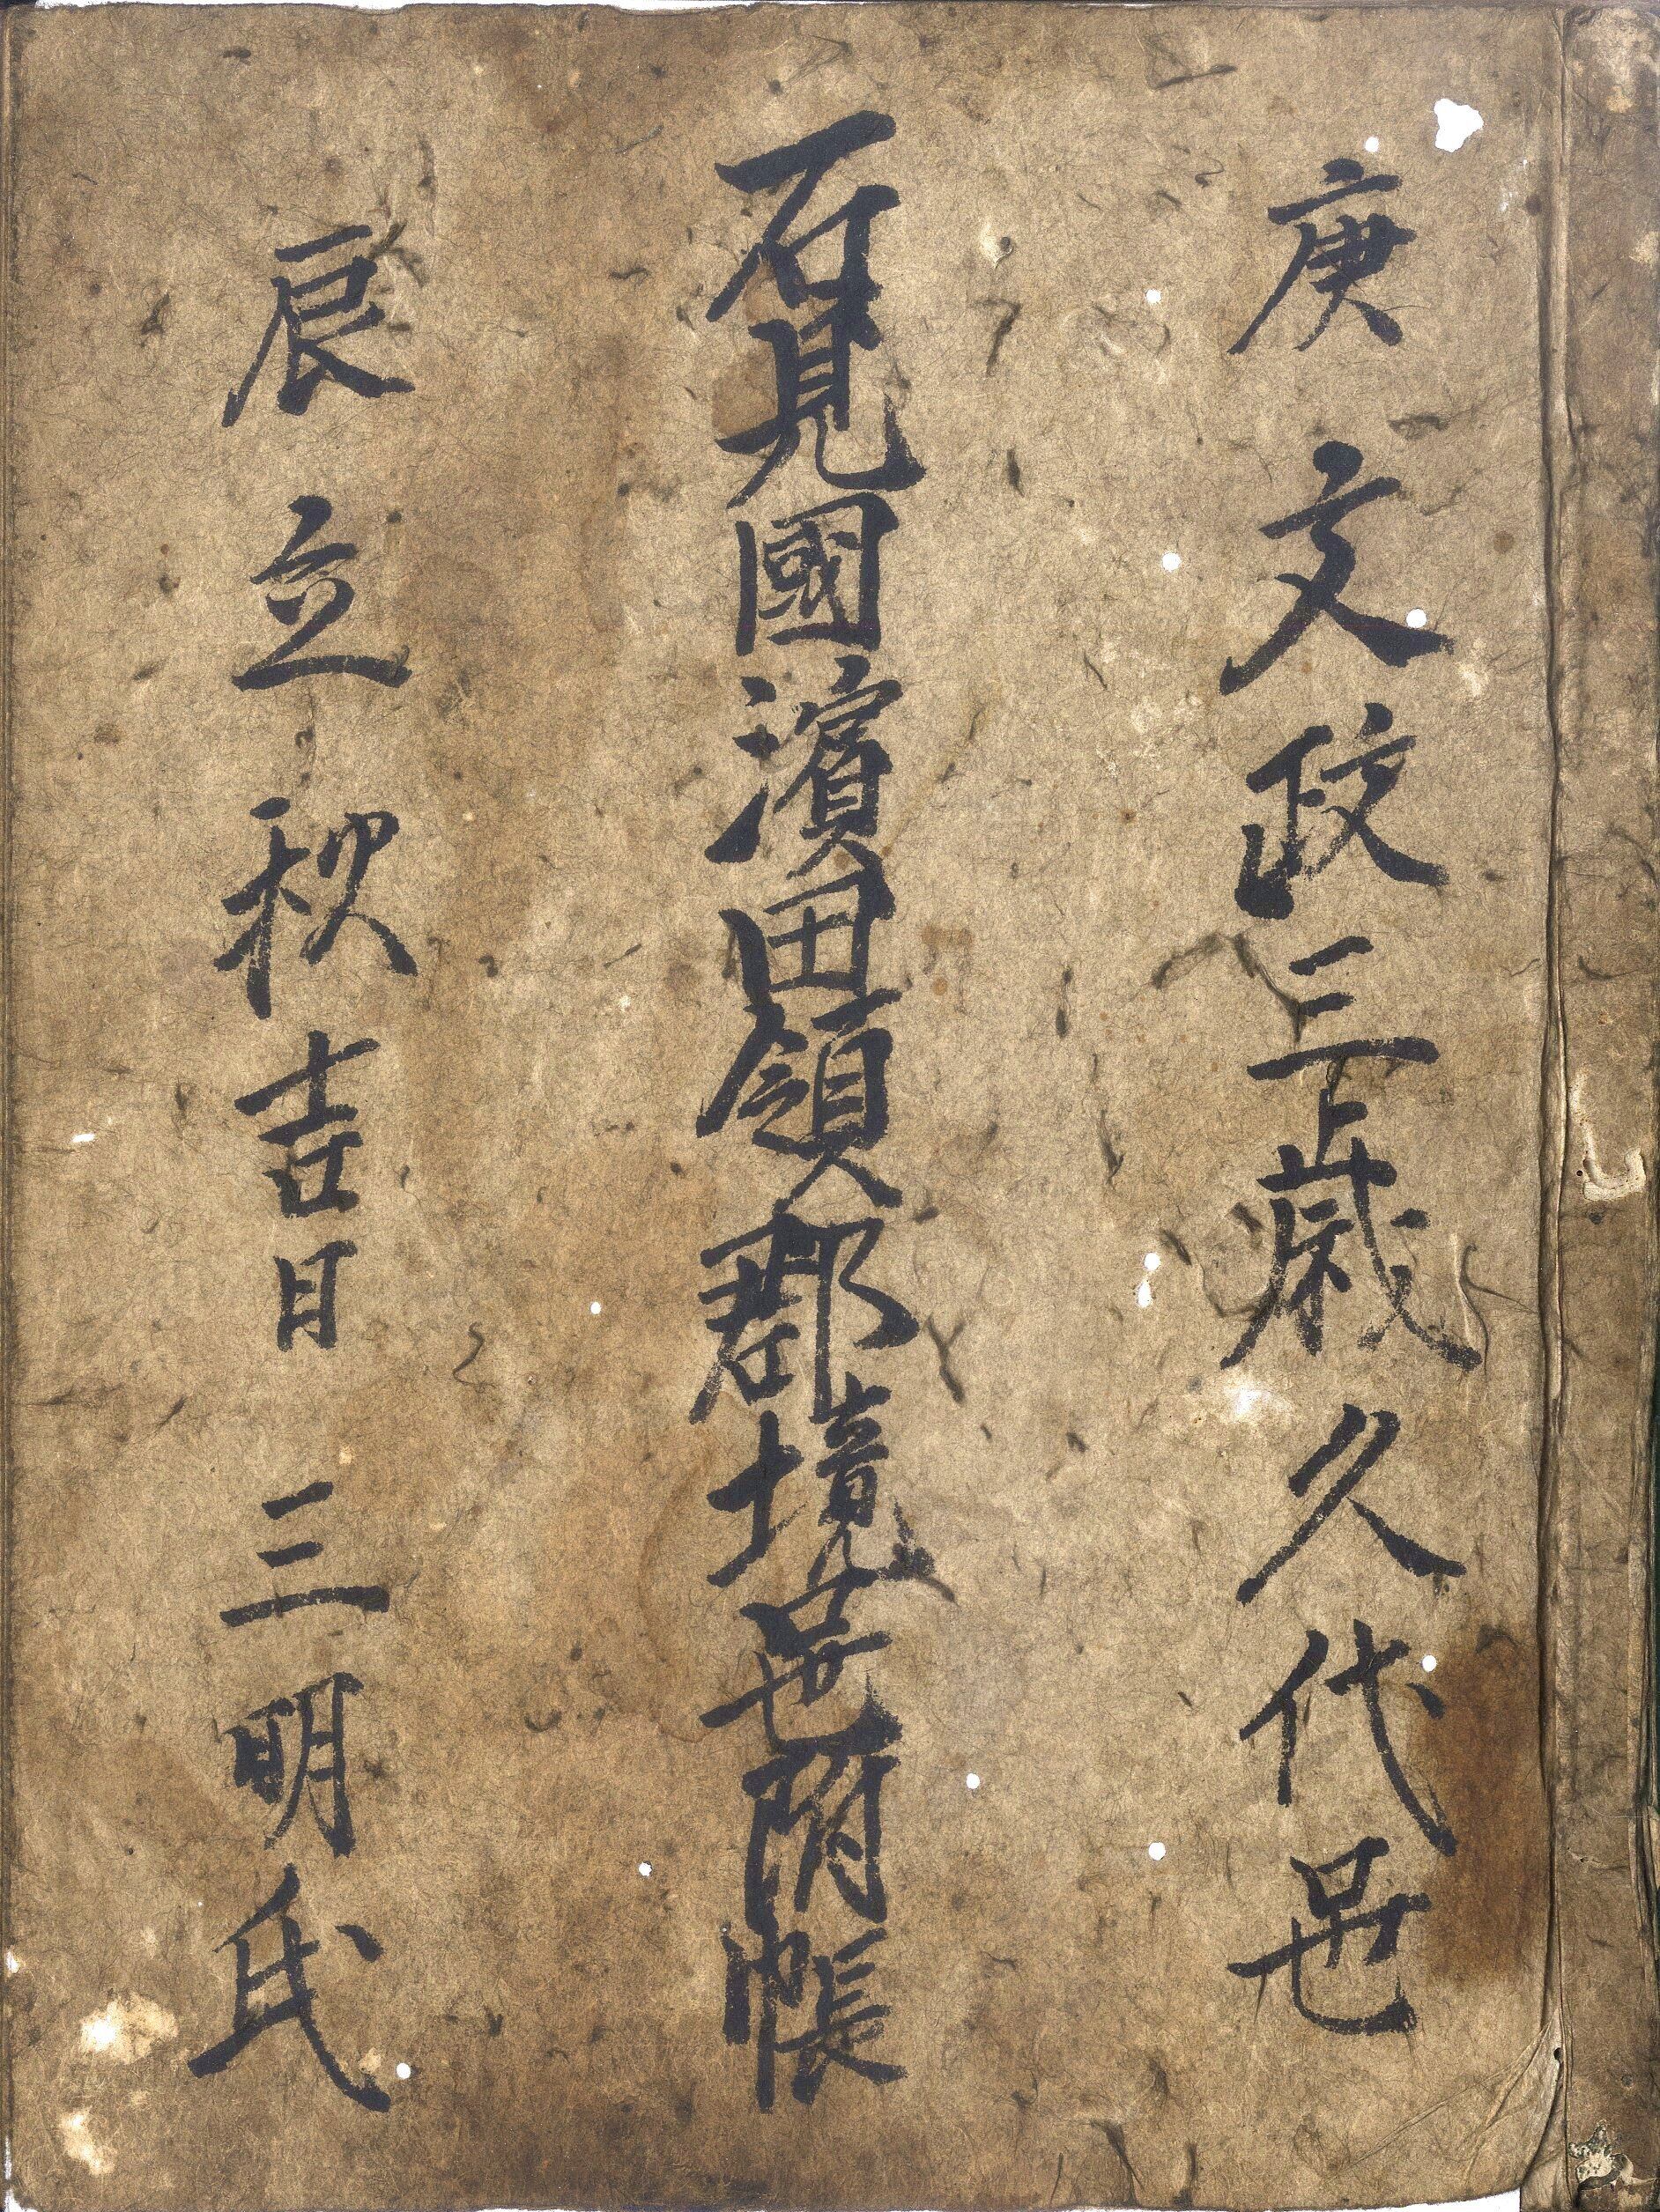 庚 文政三歳久代邑
石見國濱田領郡境邑附帳
辰 立秋吉日 三明氏